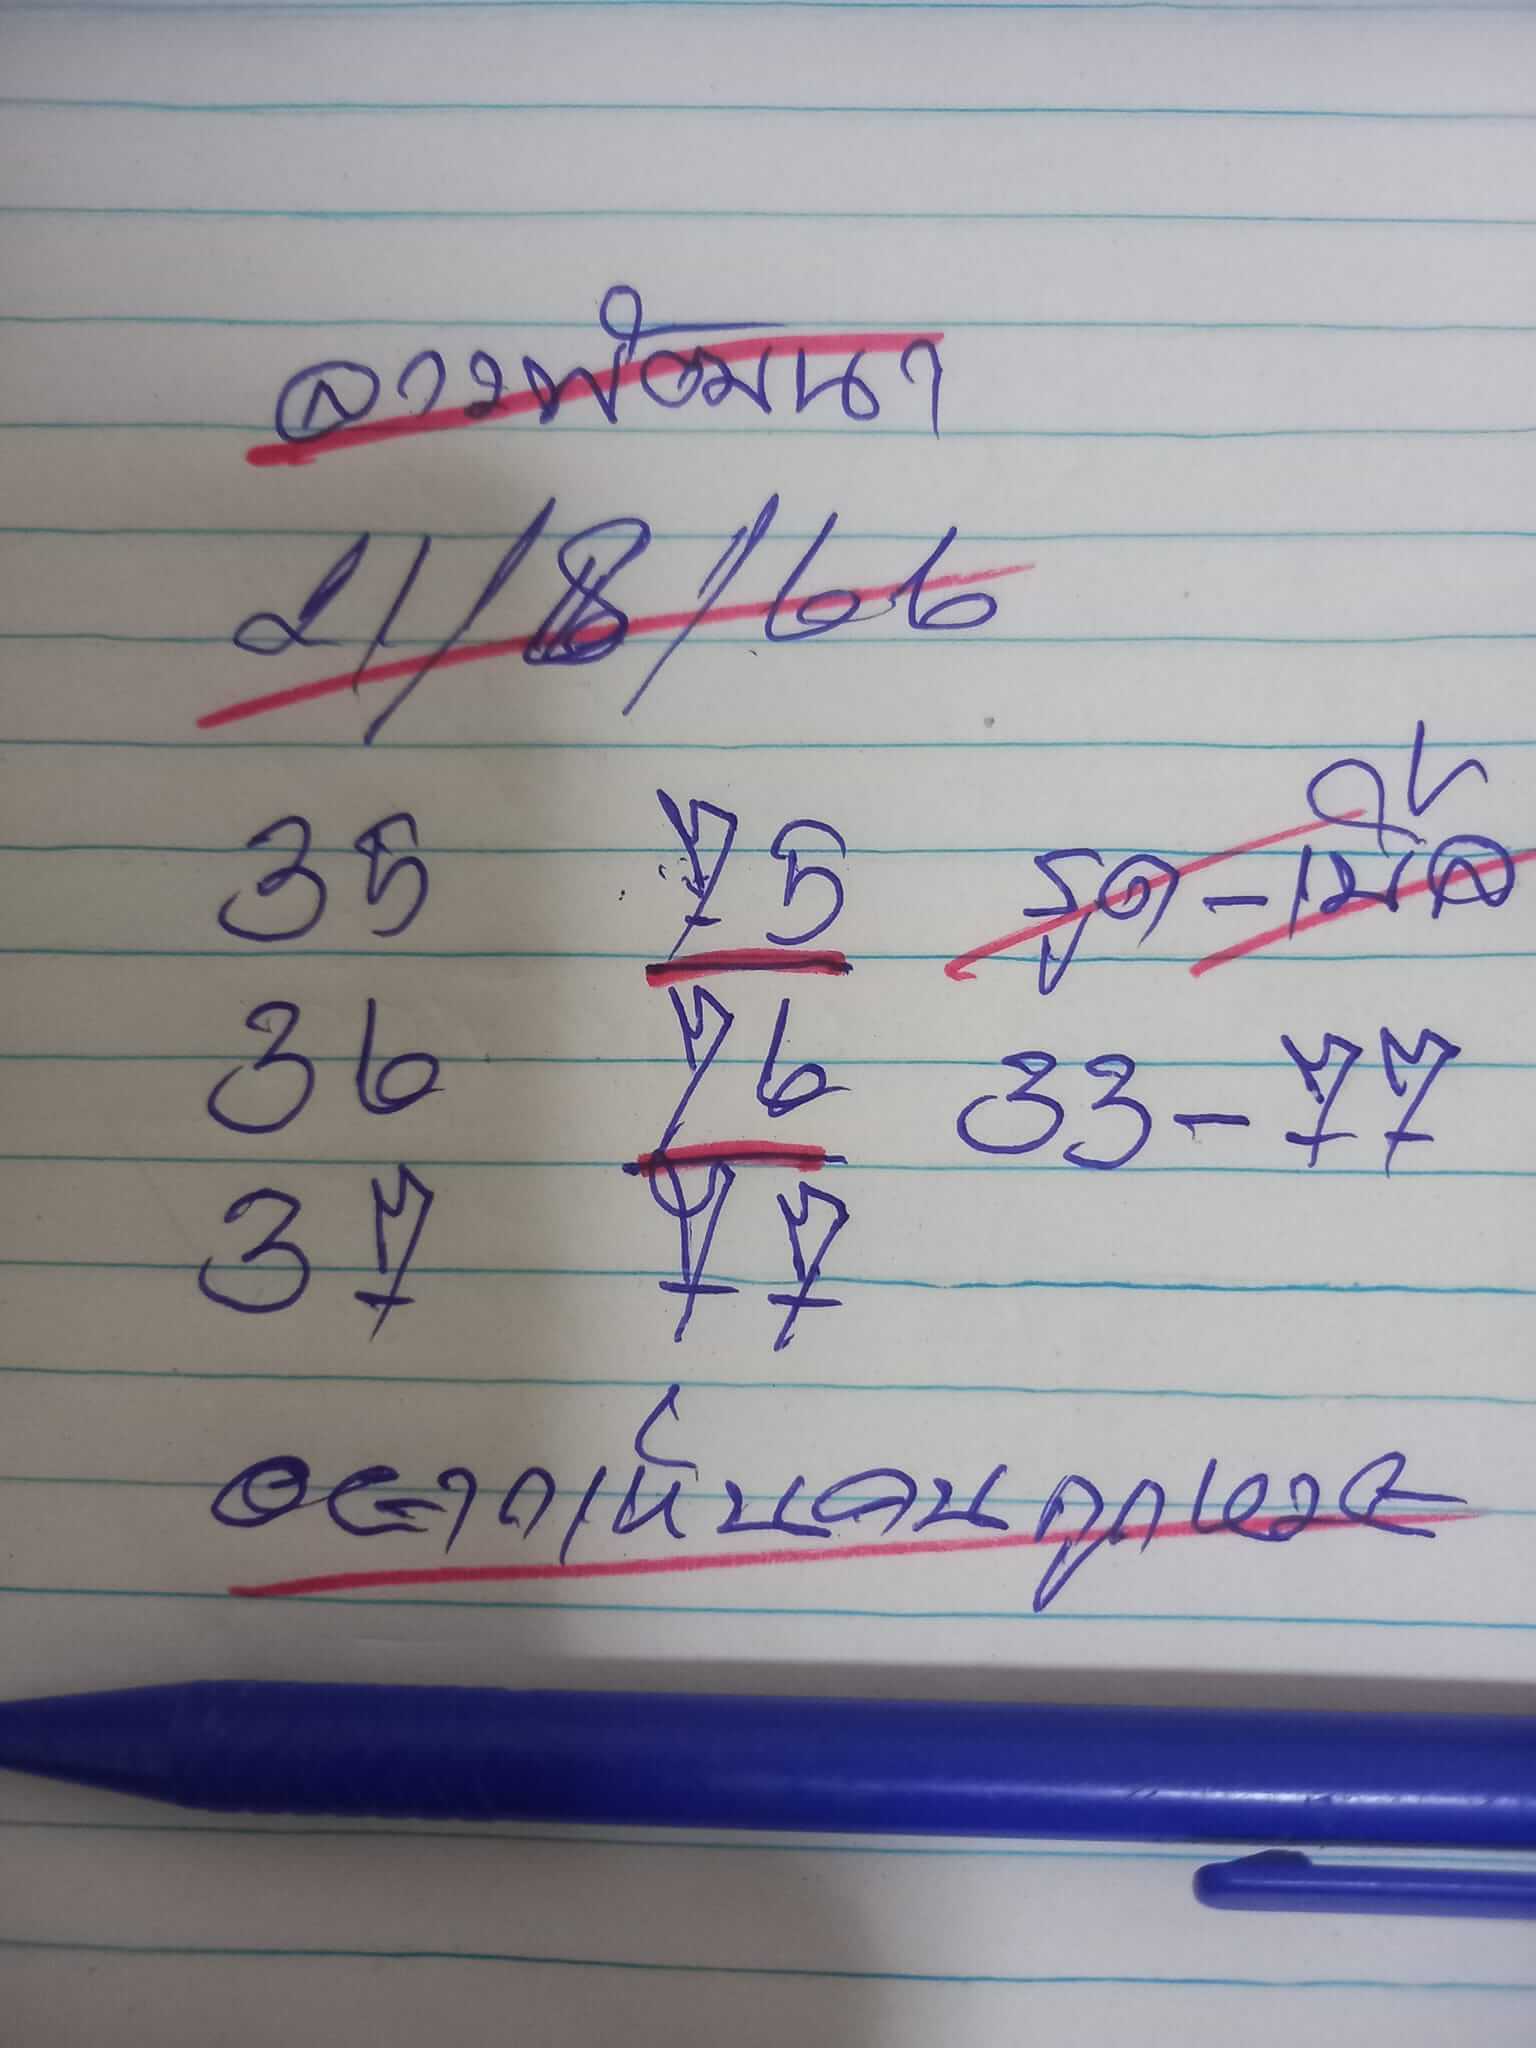 ลาวพัฒนา
21/8/66
35 75 รูด-เบิ้ล
36 76 33-77
37 77
อยากเห็นคนถูกหวย